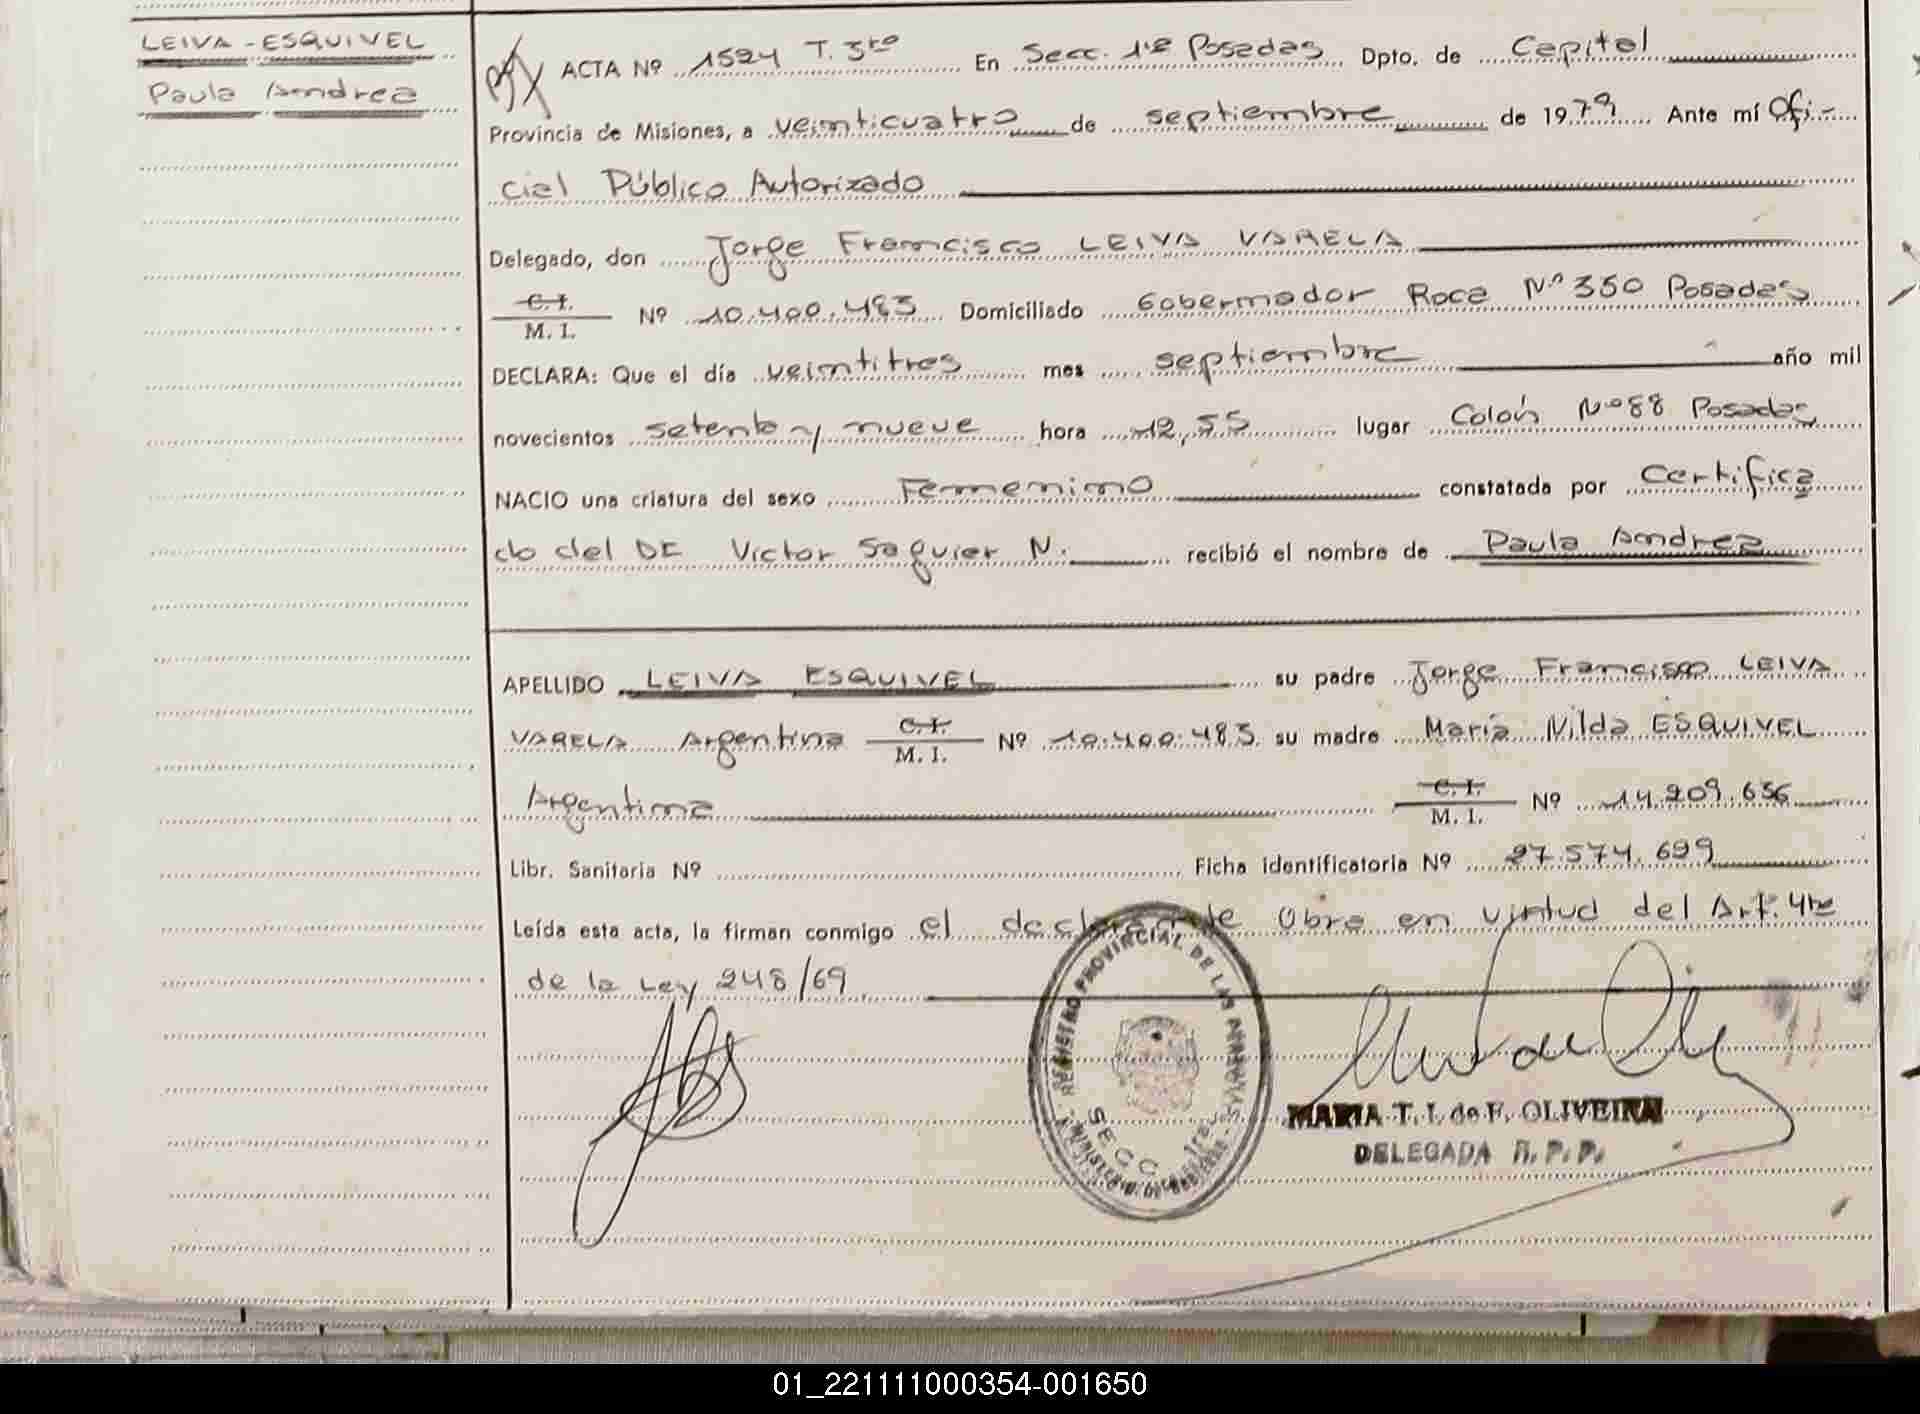 LEIVA - ESQUIVEL
Paula Andrea
ACTA Nº 1524 T. 3ro En Secc. 1ra Posadas Dpto. de Capital
Provincia de Misiones, a veinticuatro de septiembre de 1979 Ante mí Ofi-
cial Público Autorizado
Delegado, don Jorge Francisco LEIVA VARELA
C.I.
M. I. Nº 10.400.483 Domiciliado Gobernador Roca Nº 350 Posadas
DECLARA: Que el día veintitres mes septiembre año mil
novecientos setenta y nueve hora 12,55 lugar Colón Nº 88 Posadas
NACIO una criatura del sexo Femenino constatada por Certifica
do del DR Victor Saguier N. recibió el nombre de Paula Andrea
APELLIDO LEIVA ESQUIVEL su padre Jorge Francisco LEIVA
VARELA Argentina C.I. M. I. Nº 10.400.483 su madre María Nilda ESQUIVEL
Argentina C.I. M. I. Nº 14.209.636
Libr. Sanitaria Nº Ficha identificatoria Nº 27.574.699
Leída esta acta, la firman conmigo el declarante Obra en virtud del Art. 4to
de la Ley 248/69
REGISTRO PROVINCIAL DE LAS PERSONAS
SECC. 1ra.
MARIA T. I. de F. OLIVEIRA
DELEGADA R. P. P.
01_221111000354-001650